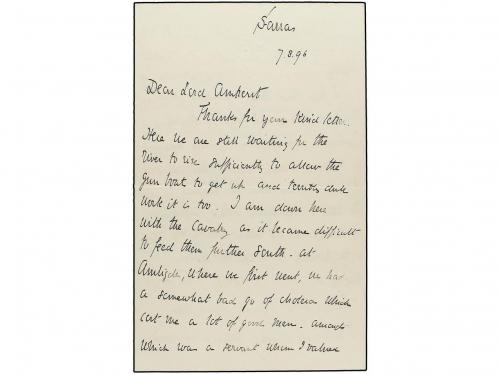 Sarras
7.8.96
Dear Lord Amherst
Thanks for your kind letter.
Here we are still waiting for the
river to rise sufficiently to allow the
gun boat to get up and terribly dull
work it is too. I am down here
with the Cavalry as it became difficult
to feed them further South. At
where we first went, we had
a somewhat bad go of cholera which
cost me a lot of good men. Amongst
which was a servant whom I valued